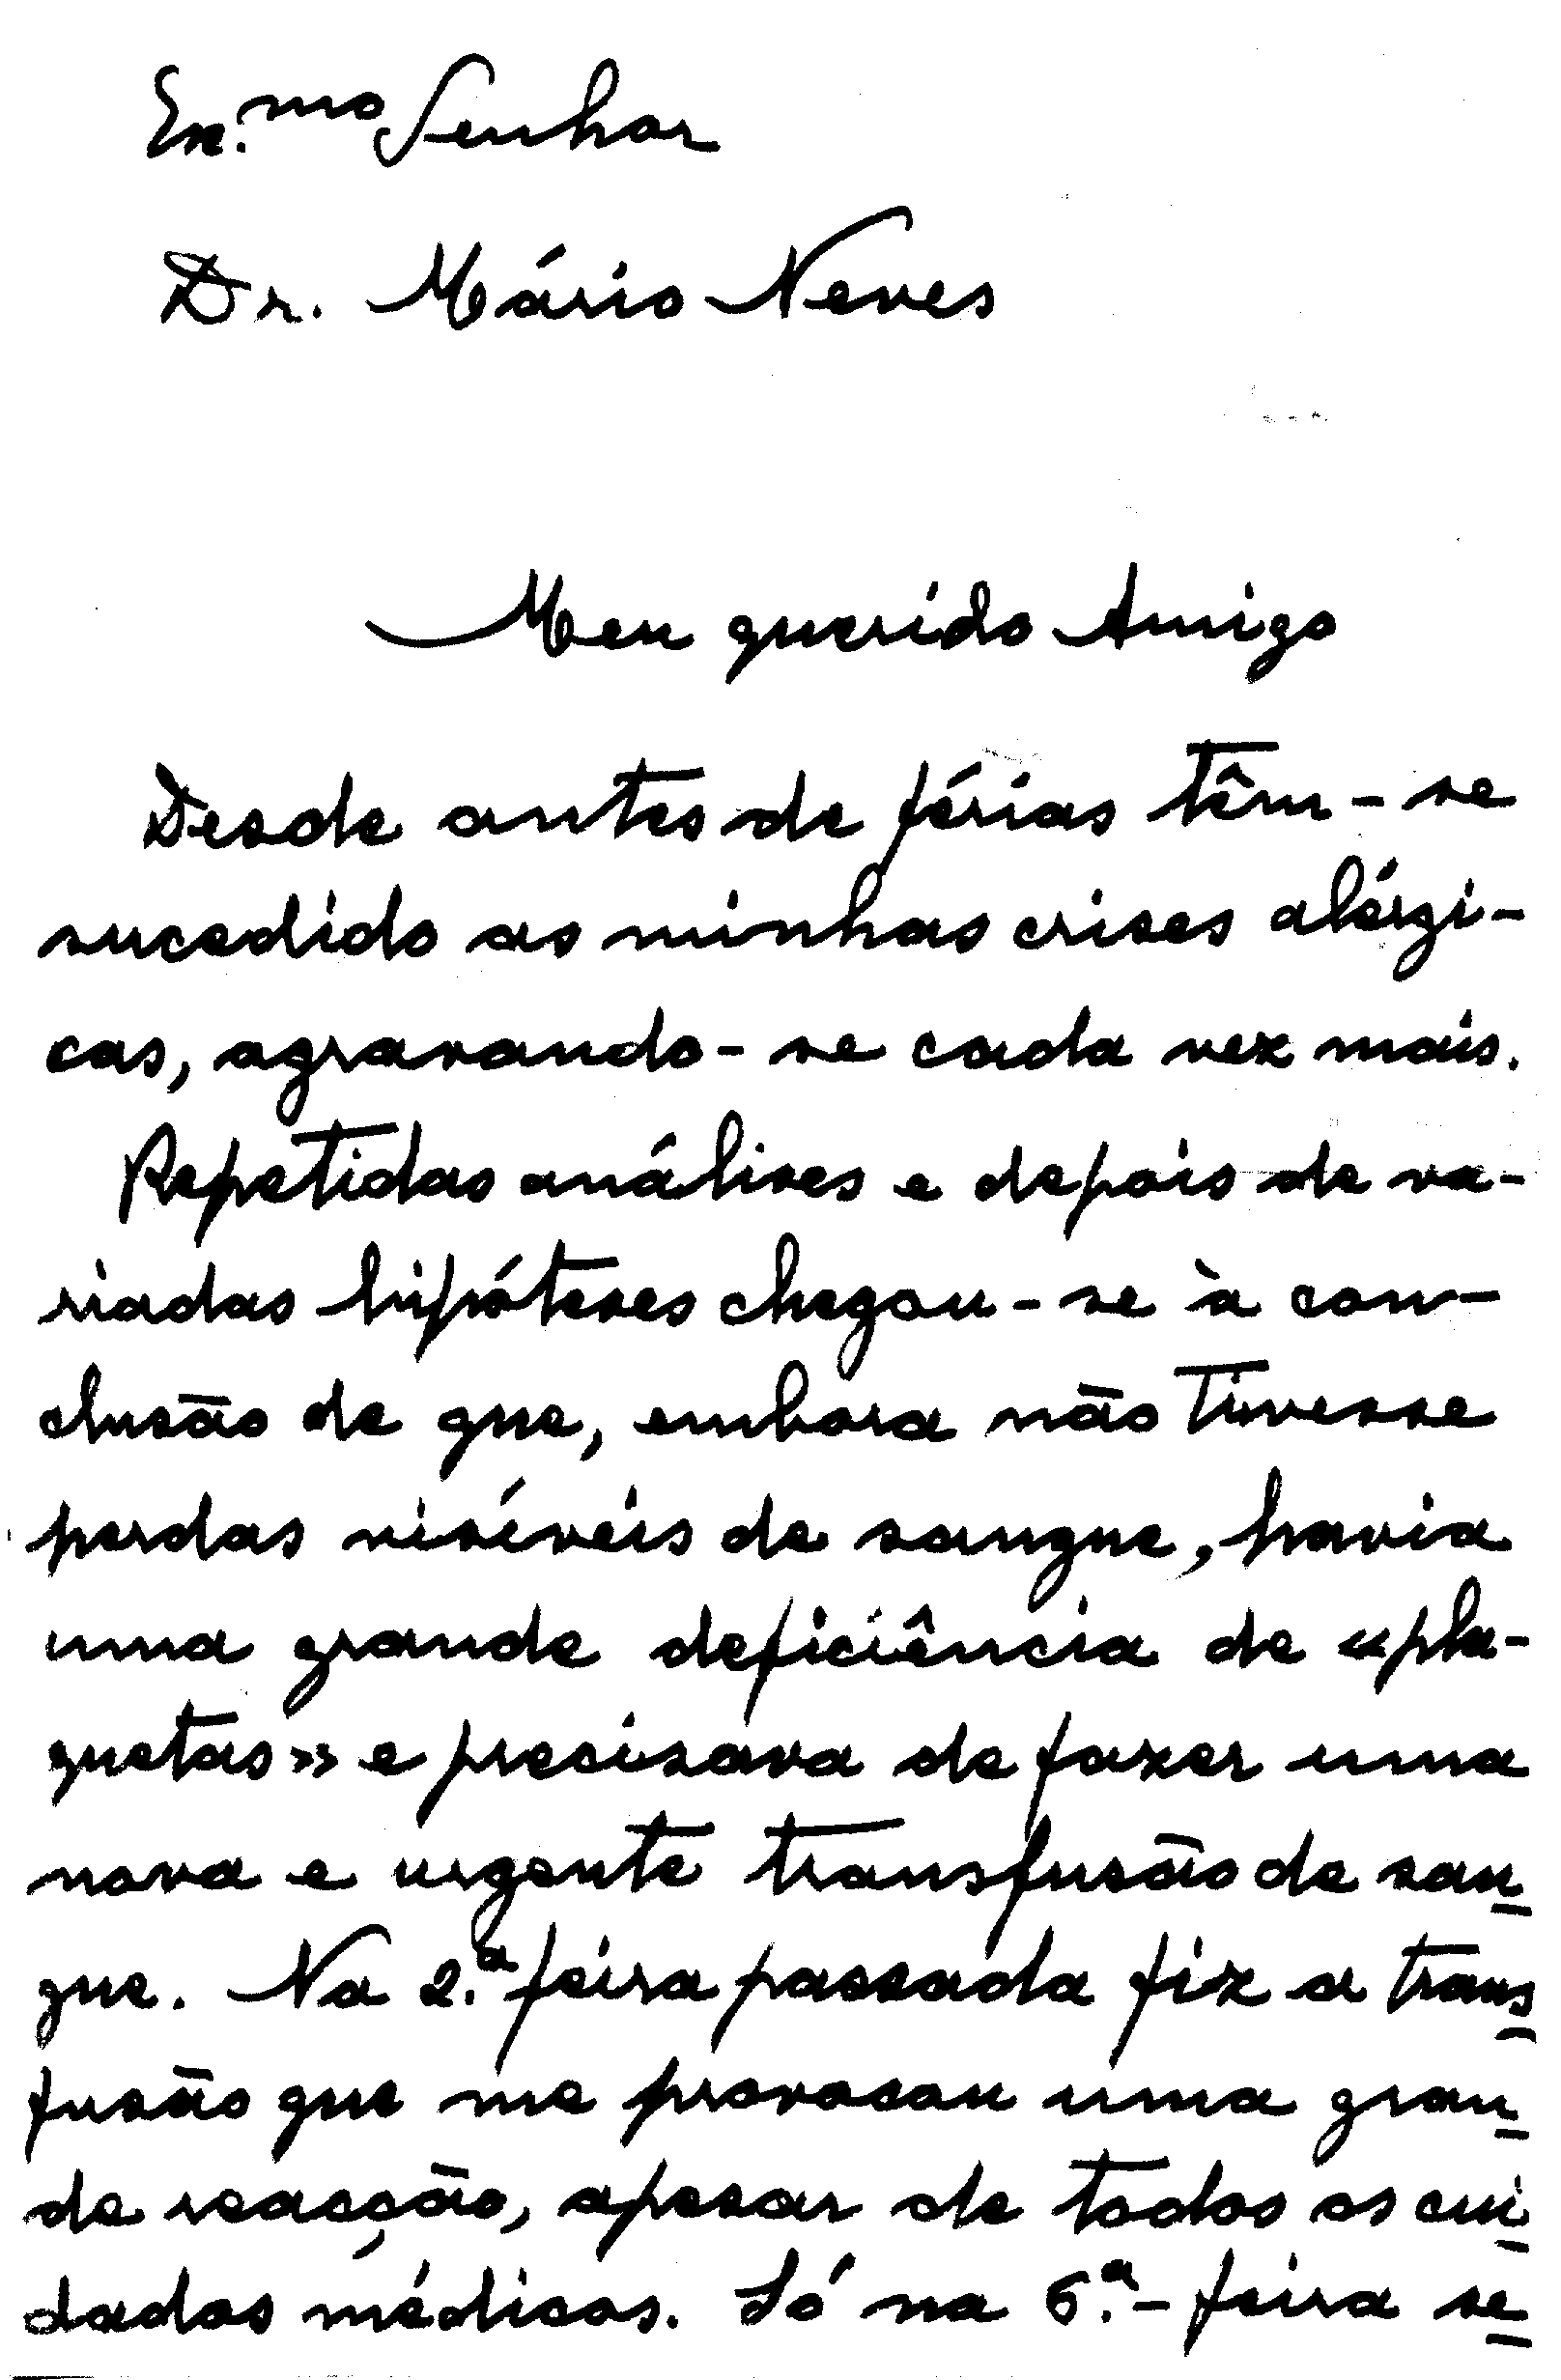 Ex.mo Senhor
Dr. Mário Neves
Meu querido Amigo
Desde antes de férias têm-se
sucedido as minhas crises alérgi-
cas, agravando-se cada vez mais.
Repetidas análises e depois de va-
riadas hipóteses chegou-se à con-
clusão de que, embora não tivesse
perdas visíveis de sangue, havia
uma grande deficiência de «pla-
quetas» e precisava de fazer uma
nova e urgente transfusão de san
gue. Na 2.ª feira passada fiz a trans
fusão que me provocou uma gran
de reacção, apesar de todos os cui
dados médicos. Só na 6.ª-feira se